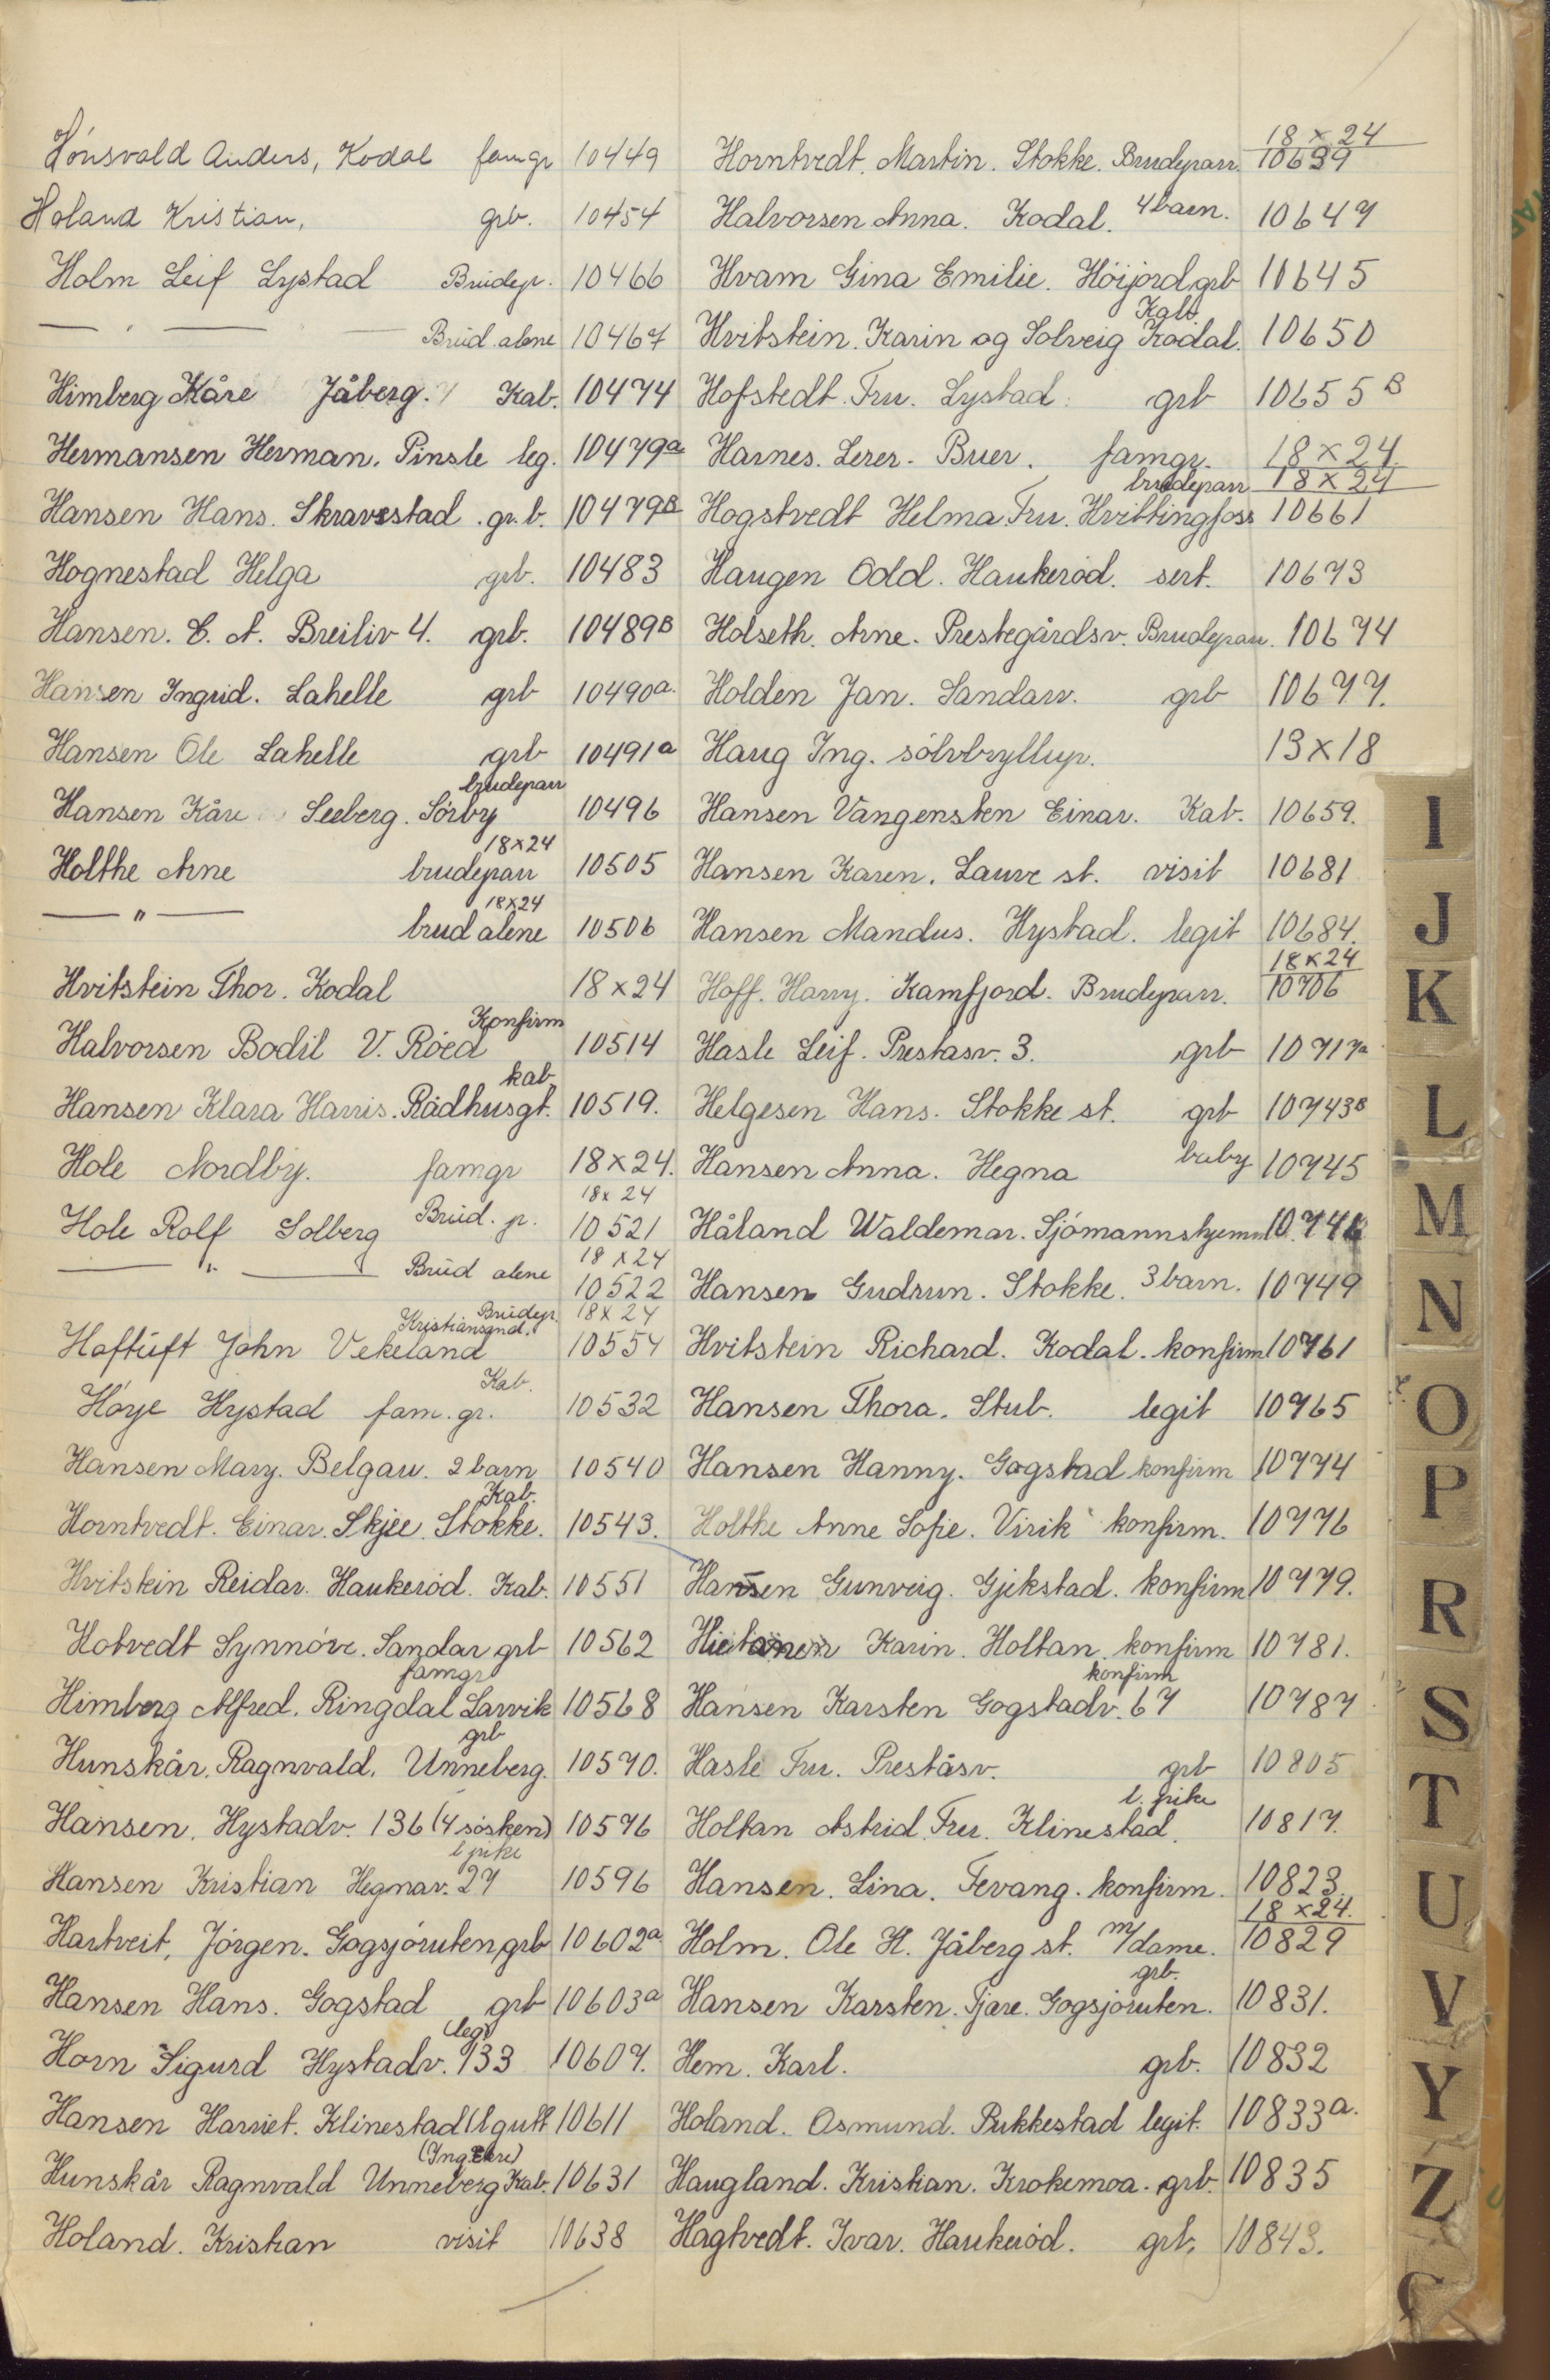 Hónsvald Anders, Kodal famgr 10449
Holand Kristian, grb. 10454
Holm Leif Lystad Brudepr. 10466
— " — Brud alene 10467
Himberg Kåre Jåberg. Kab. 10474
Hermansen Herman. Pinsle leg. 10479a
Hansen Hans. Skravestad gr.b. 10479B
Hognestad Helga grb. 10483
Hansen. C. A. Breiliv 4. grb. 10489B
Hansen Ingrid. Lahelle grb 10490a.
Hansen Ole Lahelle grb 10491a
brudeparr
Hansen Kåre Seeberg. Sórby 10496
18x24
Holthe Arne brudeparr 10505
18x24
— " — brud alene 10506
Hvitstein Thor. Kodal 18x24
Konfirm
Halvorsen Bodil V. Róed 10514
kab
Hansen Klara Harris. Rådhusgt. 10519.
Hole Nordby. famgr 18x24.
18x24
Hole Rolf Solberg Brud. p. 10521
18x24
— " — Brud alene 10522
Brudepr. 18x24
Kristiansand.
Haftúft John Vekeland 10554
Kab.
Hóye Hystad fam. gr. 10532
Hansen Mary. Belgau. 2 barn 10540
Kab.
Horntvedt. Einar. Skjee. Stokke. 10543.
Hvitstein Reidar. Haukeród. Kab. 10551
Hotvedt Synnóve. Sandar grb 10562
famgr
Himberg Alfred. Ringdal Larvik 10568
grb
Hunskår. Ragnvald. Unneberg. 10570.
Hansen. Hystadv. 136 (4 sósken) 10576
l pike
Hansen Kristian Hegnav. 27 10596
Hartveit, Jórgen. Gogsjóruten grb 10602a
Hansen Hans. Gogstad grb 10603a
(leg)
Horn Sigurd Hystadv. 133 10607.
Hansen Harriet. Klinestad (l gutt 10611
Hunskår Ragnvald Unneberg Kab. 10631
Holand. Kristian visit 10638
18x24
Horntvedt. Martin. Stokke. Brudeparr. 10639
Halvorsen Anna. Kodal. 4 barn. 10647
Hvam Gina Emilie. Hóijord grb 10645
Kab
Hvitstein. Karin og Solveig Kodal. 10650
Hofstedt. Fru. Lystad. grb 10655B
Harnes. Lerer. Buer. famgr. 18x24.
brudeparr 18x24
Hogstvedt Helma Fru. Hvittingfoss 10661
Haugen Odd. Haukeród. sert. 10673
Holseth. Arne. Prestegårdsv. Brudeparr. 10674
Holden Jan. Sandarv. grb 10677.
Haug Ing. sólvbryllup. 13x18
Hansen Vangensten Einar. Kab. 10659.
Hansen Karen. Lauve st. visit 10681
Hansen Mandus. Hystad. legit 10684.
18x24
Hoff. Harry. Kamfjord. Brudeparr. 10706
Hasle Leif. Prestasv. 3. grb 10717a
Helgesen Hans. Stokke st. grb 10743B
Hansen Anna. Hegna baby 10745
Håland Waldemar. Sjómannshjemm 10746
Hansen Gudrun. Stokke. 3 barn. 10749
Hvitstein Richard. Kodal. konfirm 10761
Hansen Thora. Stub. legit 10765
Hansen Hanny. Gogstad konfirm 10774
Holthe Anne Sofie. Virik konfirm. 10776
Hansen Gunveig. Gjekstad. konfirm 10779.
Hietanen Karin. Holtan. konfirm 10781.
konfirm
Hansen Karsten Gogstadv. 67 10787
Hasle Fru. Preståsv. grb 10805
l. pike
Holtan Astrid Fru. Klinestad. 10817.
Hansen. Lina. Fevang. konfirm. 10823.
18x24.
Holm. Ole H. Jåberg st. m/dame. 10829
grb.
Hansen Karsten. Tjare. Gogsjóruten. 10831.
Hem. Karl. grb. 10832
Holand. Osmund. Pukkestad legit. 10833a.
Haugland. Kristian. Krokemoa. grb. 10835
Hagtvedt. Ivar. Haukeród. grb. 10843.
I
J
K
L
M
N
O
P
R
S
T
U
V
Y
Z